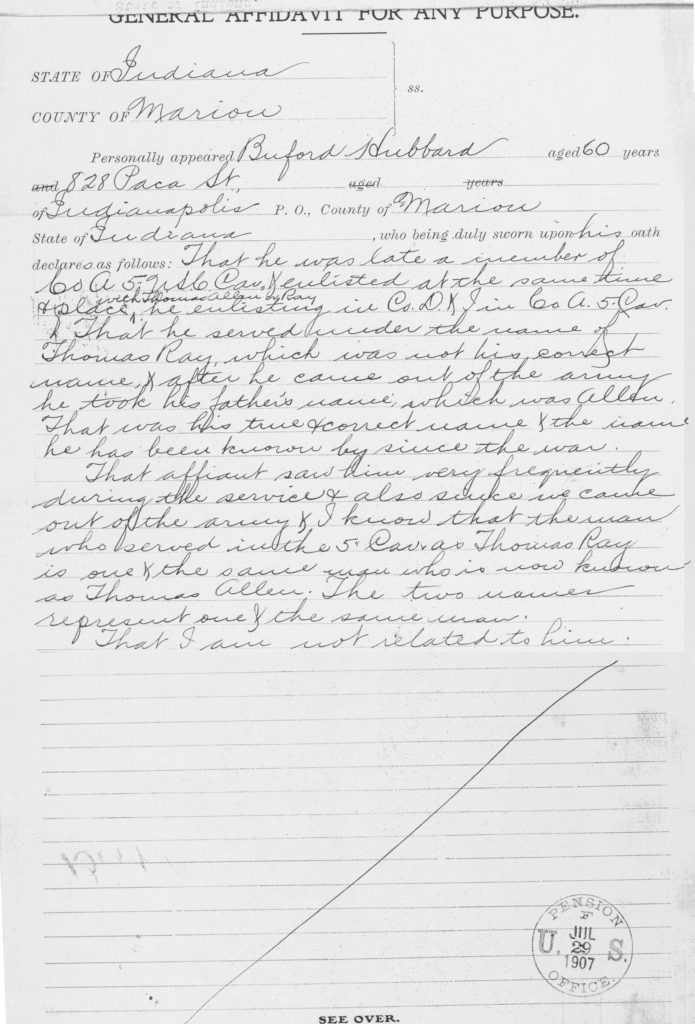 GENERAL AFFIDAVIT FOR ANY PURPOSE.
STATE OF Indiana
ss.
COUNTY OF Marion
Personally appeared Buford Hubbard aged 60 years
and 828 Paca St, aged years
of Indianapolis P. O., County of Marion
State of Indiana, who being duly sworn upon his oath
declares as follows: That he was late a member of
Co A 5 U.S.C. Cav. & enlisted at the same time
with Thomas Allen or Ray
& place, he enlisting in Co. D. & I in Co A. 5 Cav.
& That he served under the name of
Thomas Ray, which was not his correct
name, & after he came out of the army
he took his father's name, which was Allen.
That was his true & correct name & the name
he has been known by since the war.
That affiant saw him very frequently
during the service & also since we came
out of the army & I know that the man
who served in the 5 Cav. as Thomas Ray
is one & the same man who is now known
as Thomas Allen. The two names
represent one & the same man.
That I am not related to him.
PENSION
F
U. S.
JUL
29
1907
OFFICE.
SEE OVER.